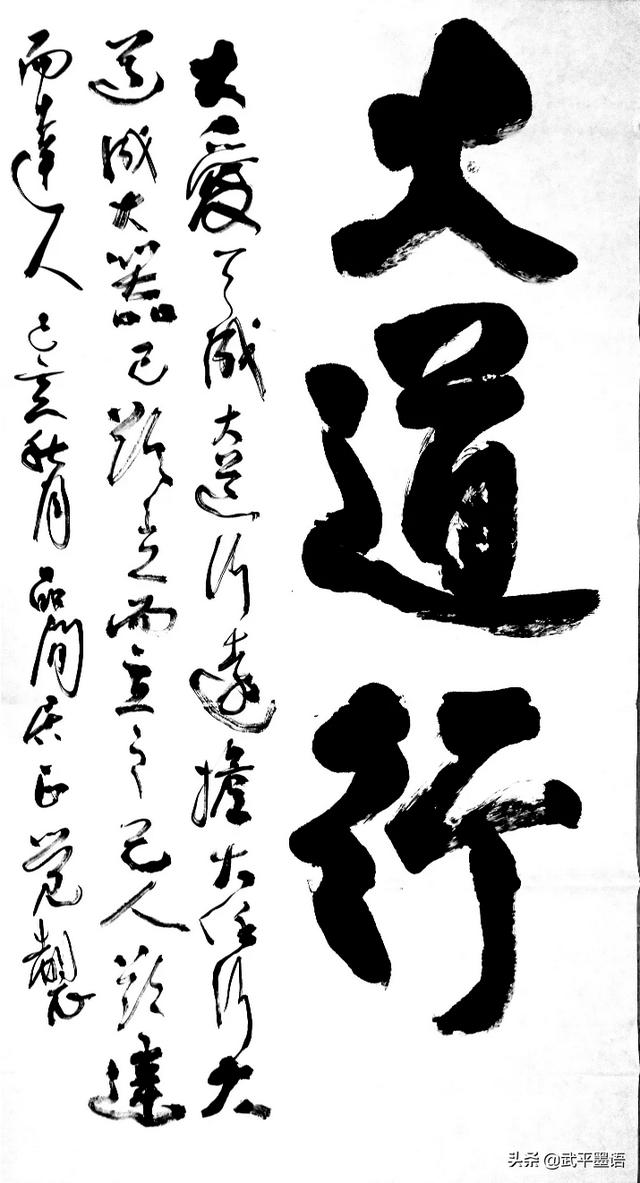 大道行
大愛成大道行遠擔大任行大
道成大器己欲立而立己人欲達
而達人 己亥秋月品閒居正覺製
头条 @武平墨语